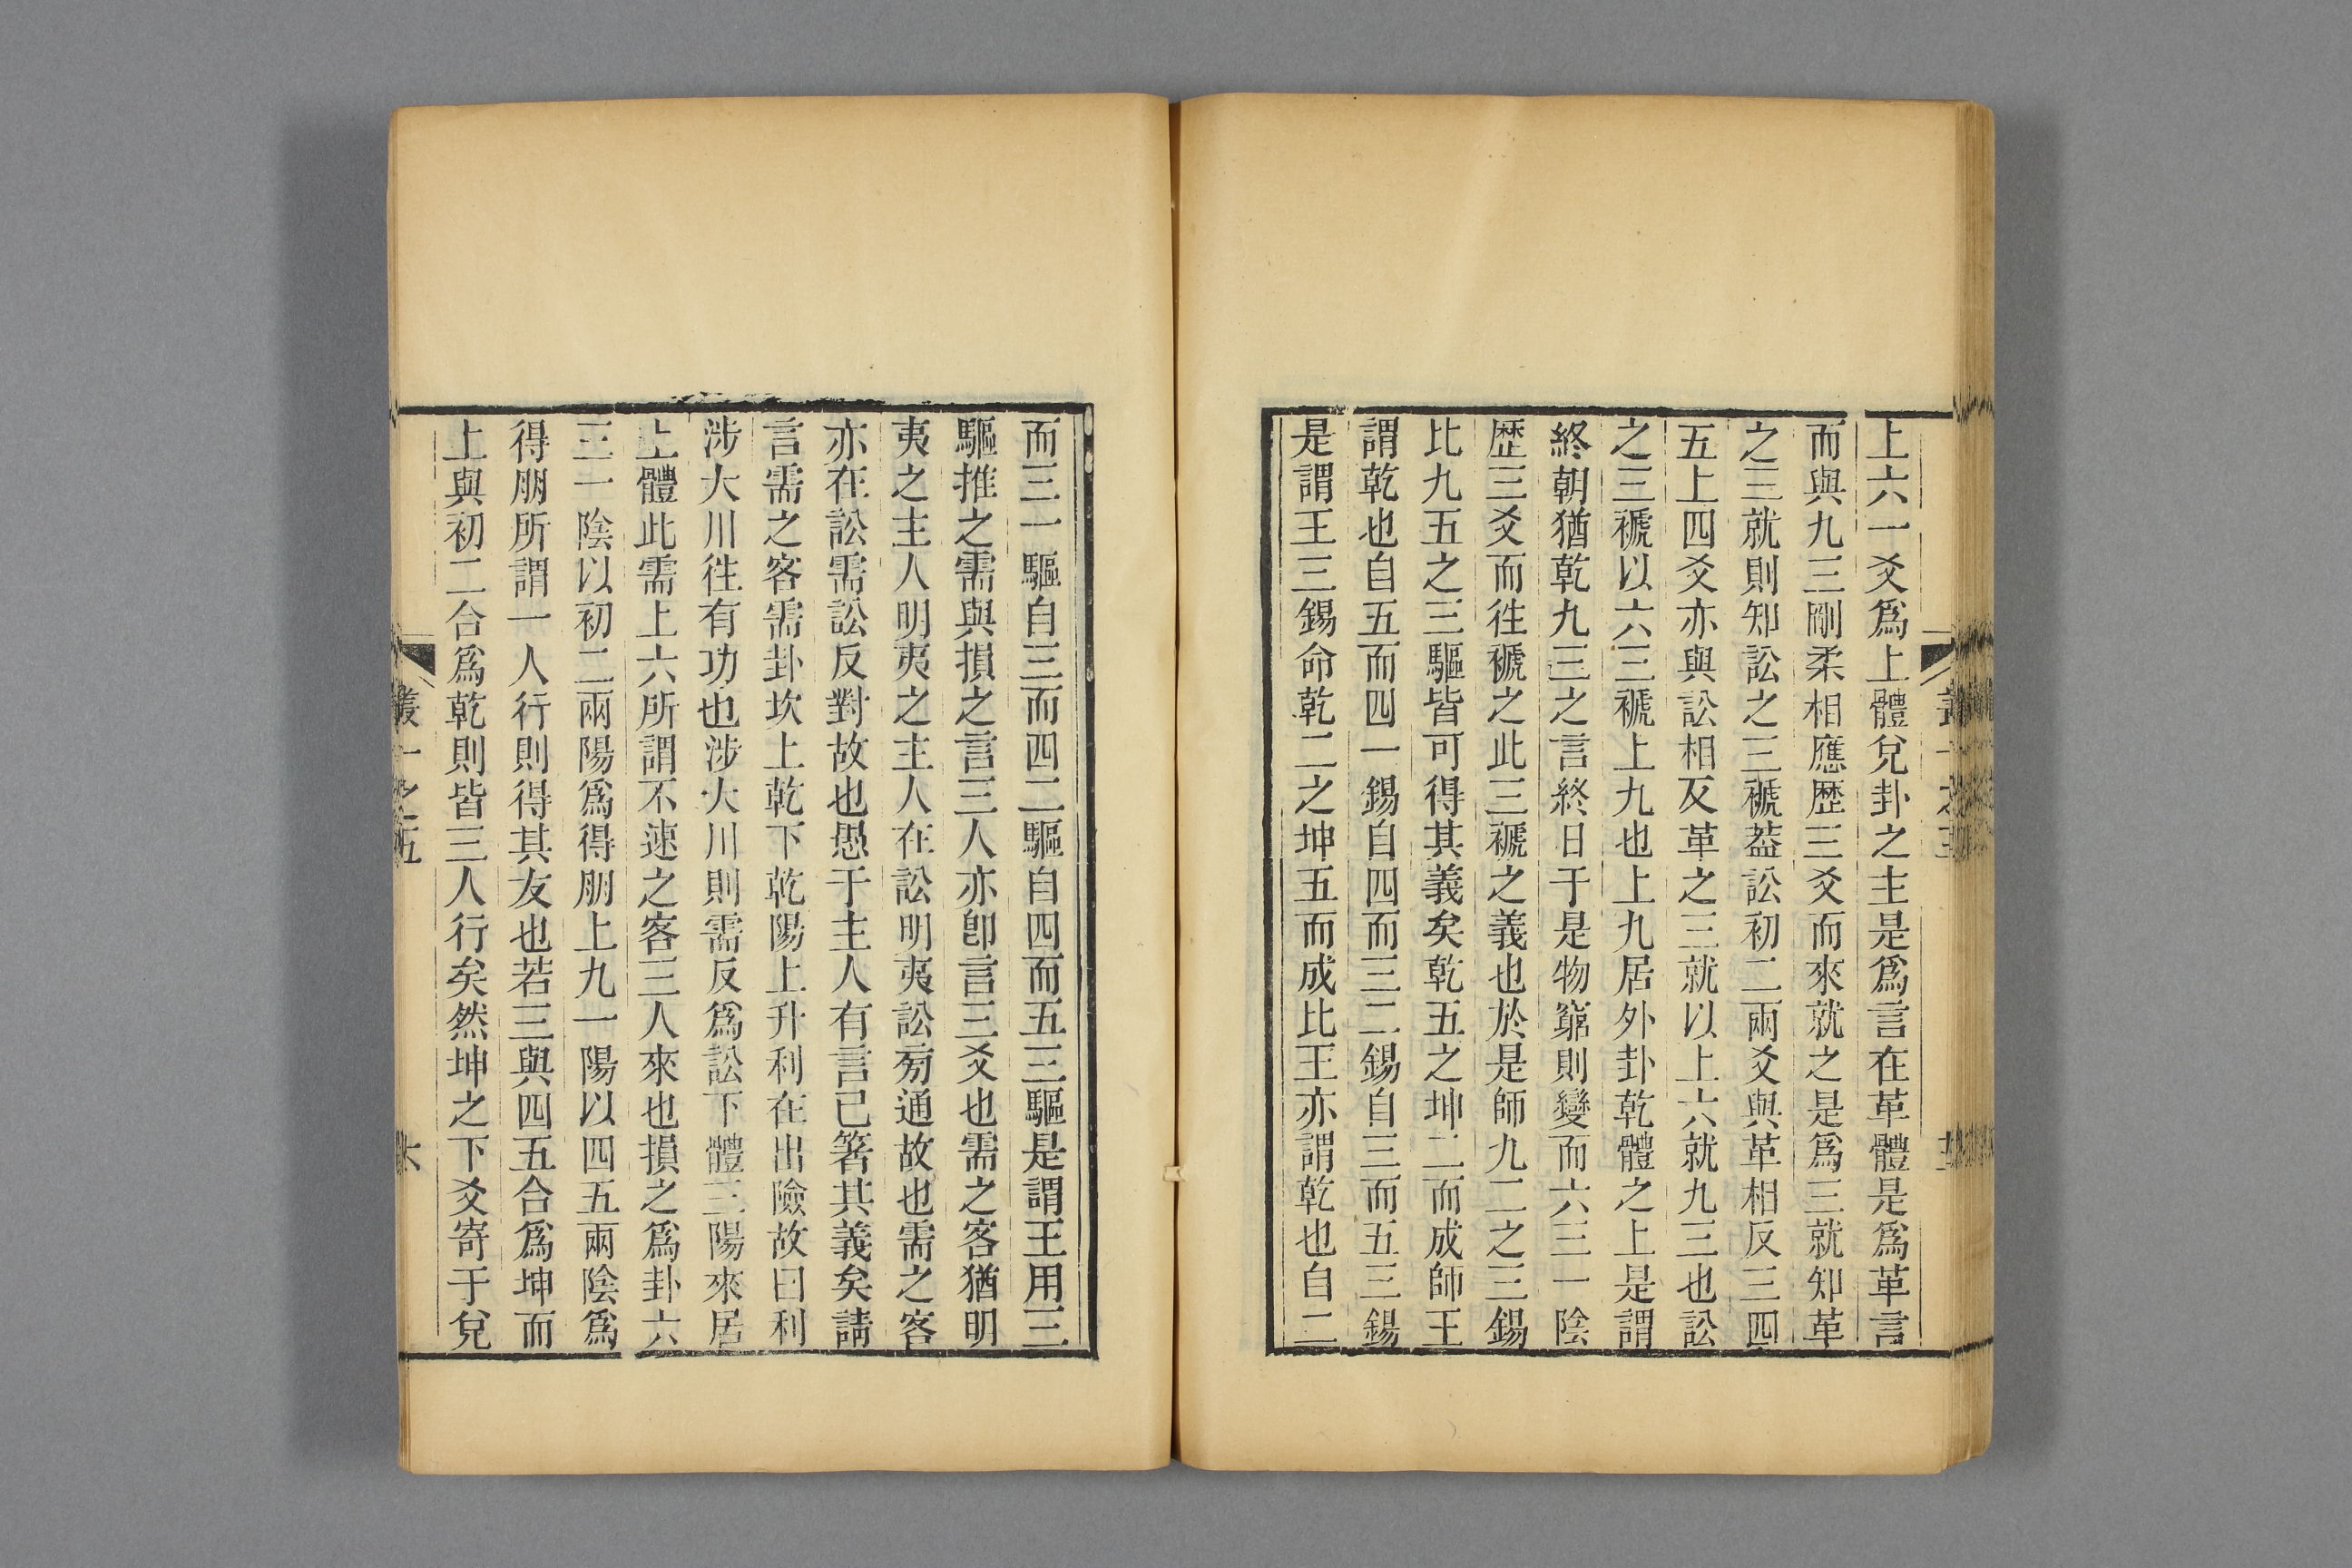 上六一爻爲上體兌卦之主是爲言在革體是爲革言
而與九三剛柔相應歴三爻而來就之是爲三就知革
之三就則知訟之三褫葢訟初二兩爻與革相反三四
五上四爻亦與訟相反革之三就以上六就九三也訟
之三褫以六三褫上九也上九居外卦乾體之上是謂
終朝猶乾九三之言終日于是物窮則變而六三一陰
歴三爻而往褫之此三褫之義也於是師九二之三錫
比九五之三驅皆可得其義矣乾五之坤二而成師王
謂乾也自五而四一錫自四而三二錫自三而五三錫
是謂王三錫命乾二之坤五而成比王亦謂乾也自二
而三一驅自三而四二驅自四而五三驅是謂王用三
驅推之需與損之言三人亦卽言三爻也需之客猶明
夷之主人明夷之主人在訟明夷訟㫄通故也需之客
亦在訟需訟反對故也愚于主人有言已箸其義矣請
言需之客需卦坎上乾下乾陽上升利在出險故曰利
涉大川往有功也涉大川則需反爲訟下體三陽來居
上體此需上六所謂不速之客三人來也損之爲卦六
三一陰以初二兩陽爲得朋上九一陽以四五兩陰爲
得朋所謂一人行則得其友也若三與四五合爲坤而
上與初二合爲乾則皆三人行矣然坤之下爻寄于兌
叢一之五